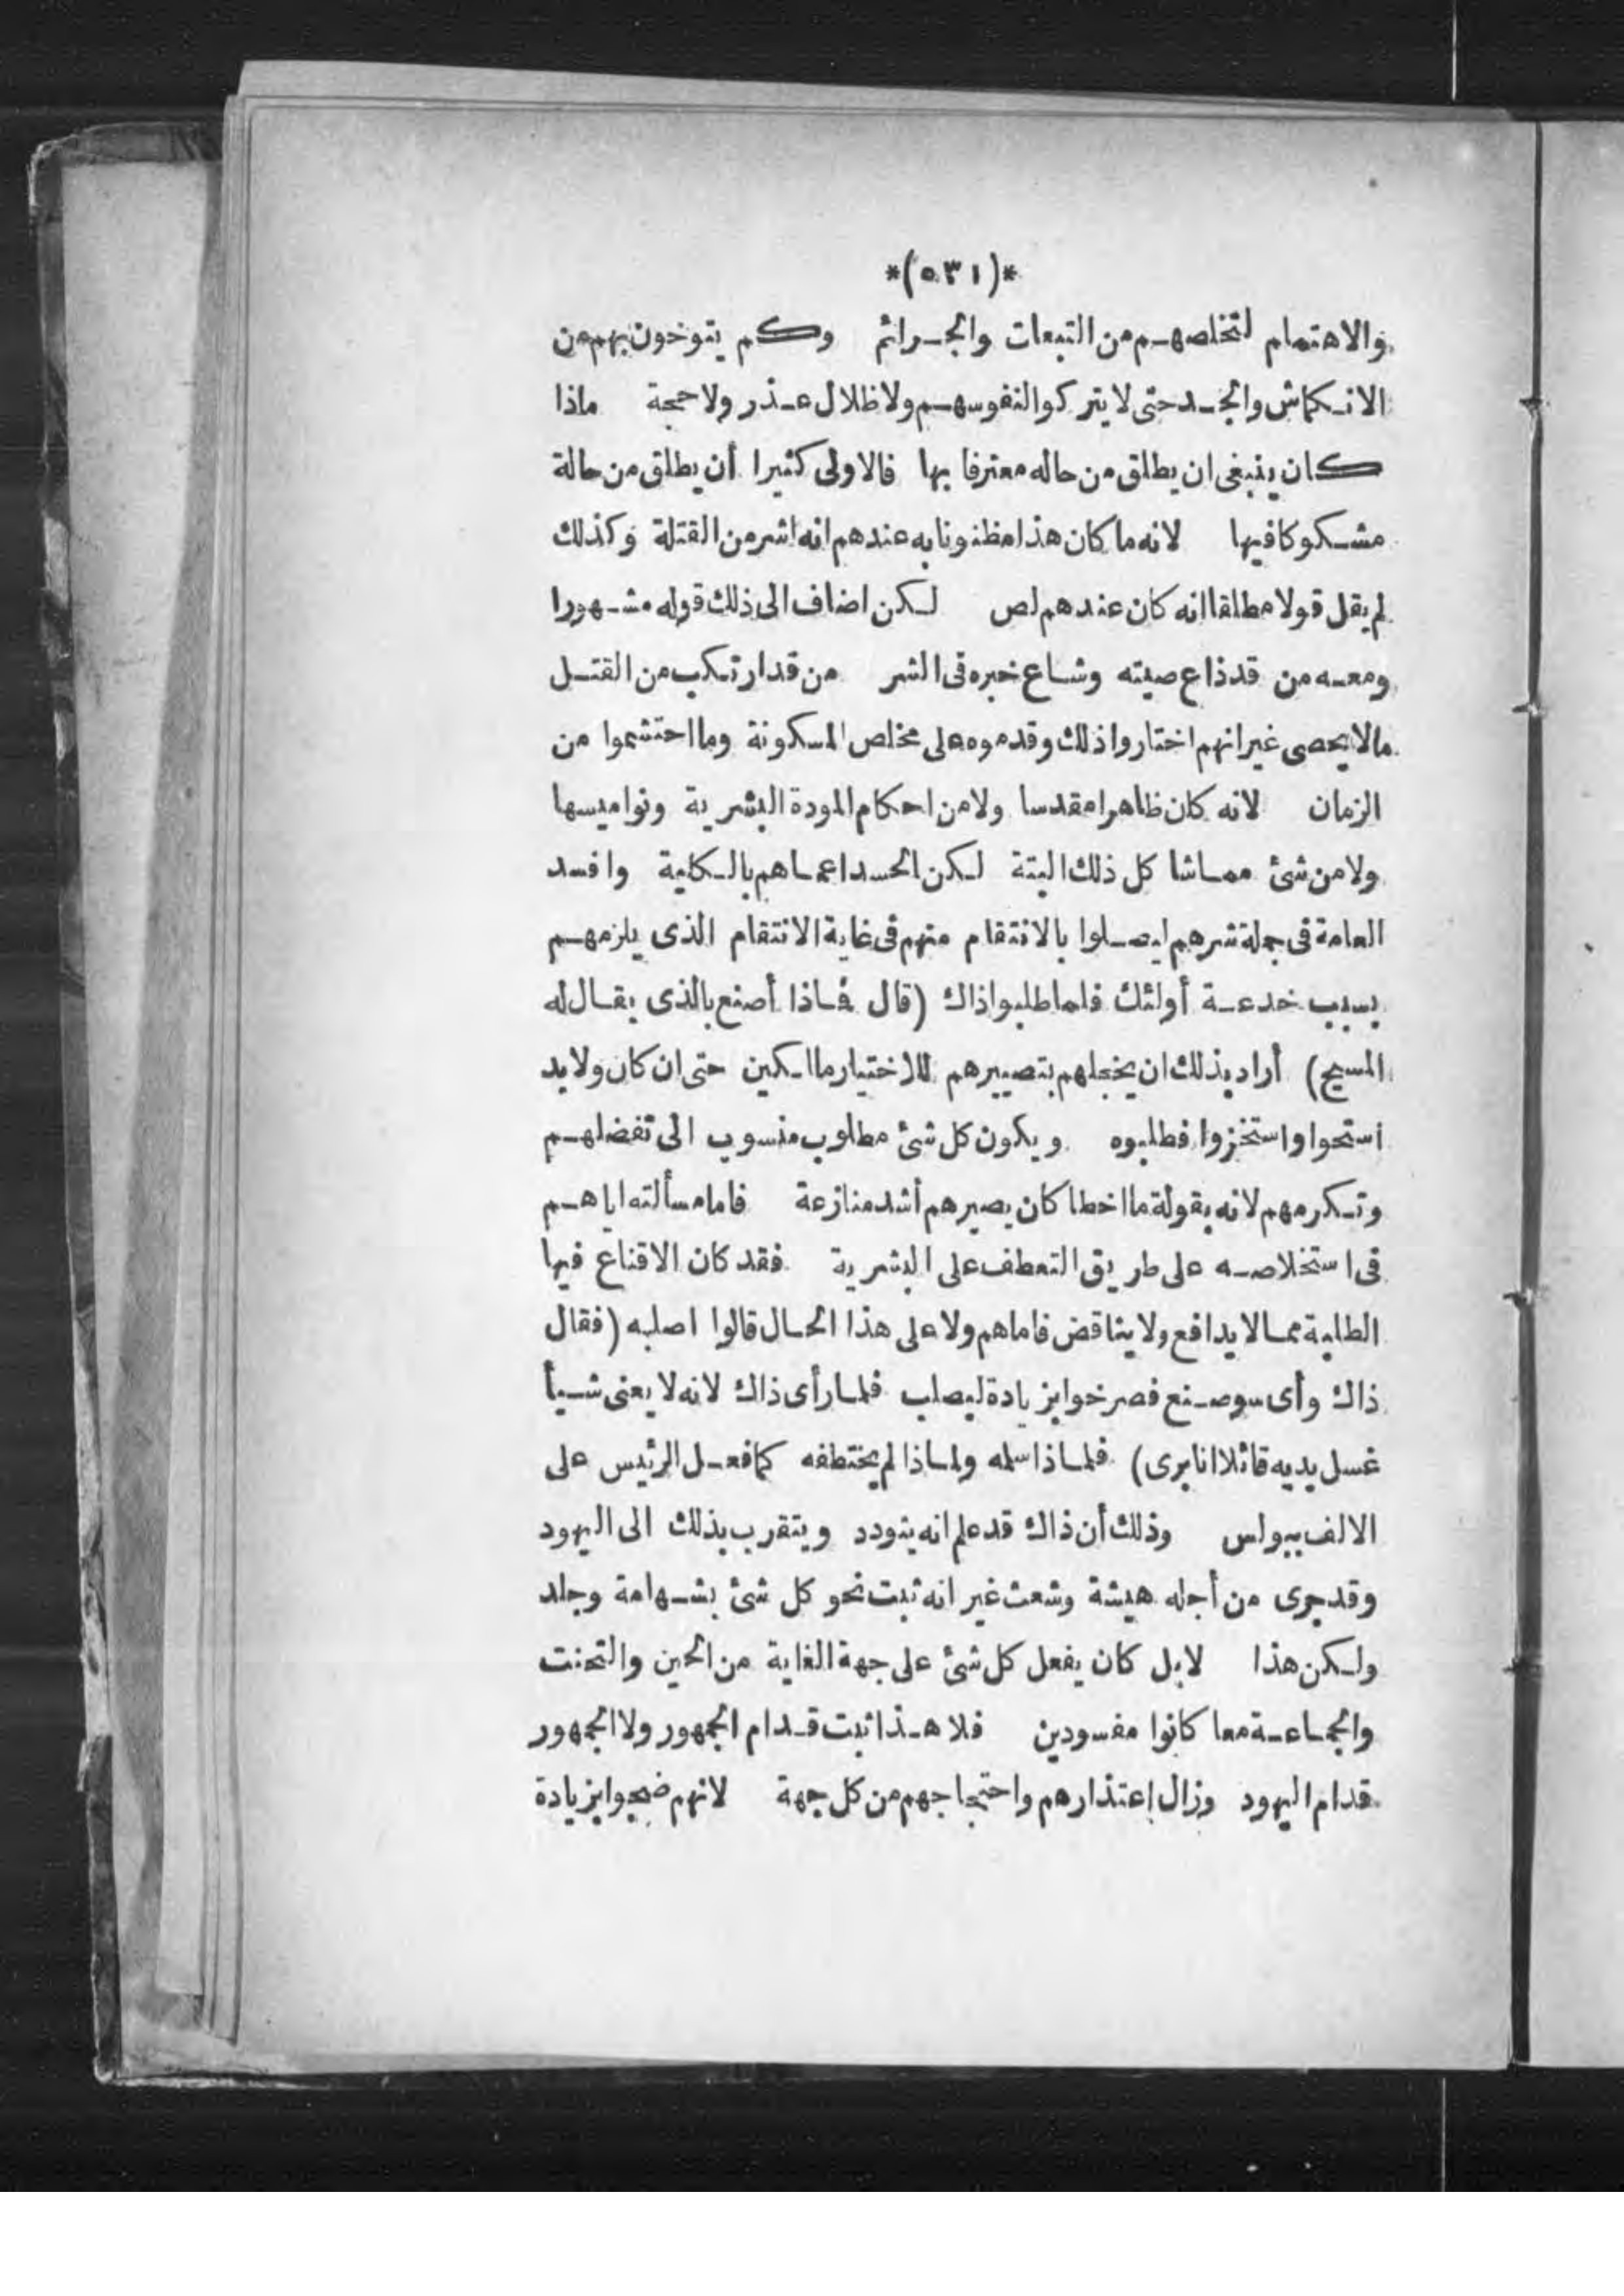 *(٥٣١)*
والاهتمام لتخلصهم من التبعات والجرائم وكم يتوخون بهم من
الانكماش والجد حتى لا يتركوا لنفوسهم ولا ظلال عذر ولا حجة ماذا
كان ينبغى ان يطلق من حاله معترفا بها فالاولى كثيرا أن يطلق من حالة
مشكوكا فيها لانه ما كان هذا مظنونا به عندهم انه اشر من القتلة وكذلك
لم يقل قولا مطلقا انه كان عندهم لص لكن اضاف الى ذلك قوله مشهورا
ومعه من قد ذاع صيته وشاع خبره فى الشر من قد ارتكب من القتل
مالا يحصى غير انهم اختاروا ذلك وقدموه على مخلص المسكونة وما احتشموا من
الزمان لانه كان ظاهرا مقدسا ولا من احكام المودة البشرية ونواميسها
ولا من شئ مماشا كل ذلك البتة لكن الحسد اعماهم بالكلية وافسد
العامة فى جملة شرهم ليصلوا بالانتقام منهم فى غاية الانتقام الذى يلزمهم
بسبب خدعة أولئك فلما طلبوا ذاك (قال فماذا أصنع بالذى يقال له
المسيح) أراد بذلك ان يخجلهم بتصييرهم للاختيار مالكين حتى ان كان ولا بد
استحوا واستخزوا فطلبوه ويكون كل شئ مطلوب منسوب الى تفضلهم
وتكرمهم لانه بقولة ما اخطا كان يصيرهم أشد منازعة فاما مسألته اياهم
فى استخلاصه على طريق التعطف على البشرية فقد كان الاقناع فيها
الطلبة مما لا يدافع ولا يناقض فاما هم ولا على هذا الحال قالوا اصلبه (فقال
ذاك وأى سوء صنع فصرخوا بزيادة ليصلب فلما رأى ذاك لانه لا يعنى شيأ
غسل يديه قائلا انا برى) فلماذا سلمه ولماذا لم يختطفه كما فعل الرئيس على
الالف ببولس وذلك أن ذاك قد علم انه يتودد ويتقرب بذلك الى اليهود
وقد جرى من أجله هيشة وشعث غير انه ثبت نحو كل شئ بشهامة وجلد
ولكن هذا لا بل كان يفعل كل شئ على جهة الغاية من الجبن والتخنث
والجماعة معا كانوا مفسودين فلا هذا ثبت قدام الجمهور ولا الجمهور
قدام اليهود وزال إعتذارهم واحتجاجهم من كل جهة لانهم ضجوا بزيادة